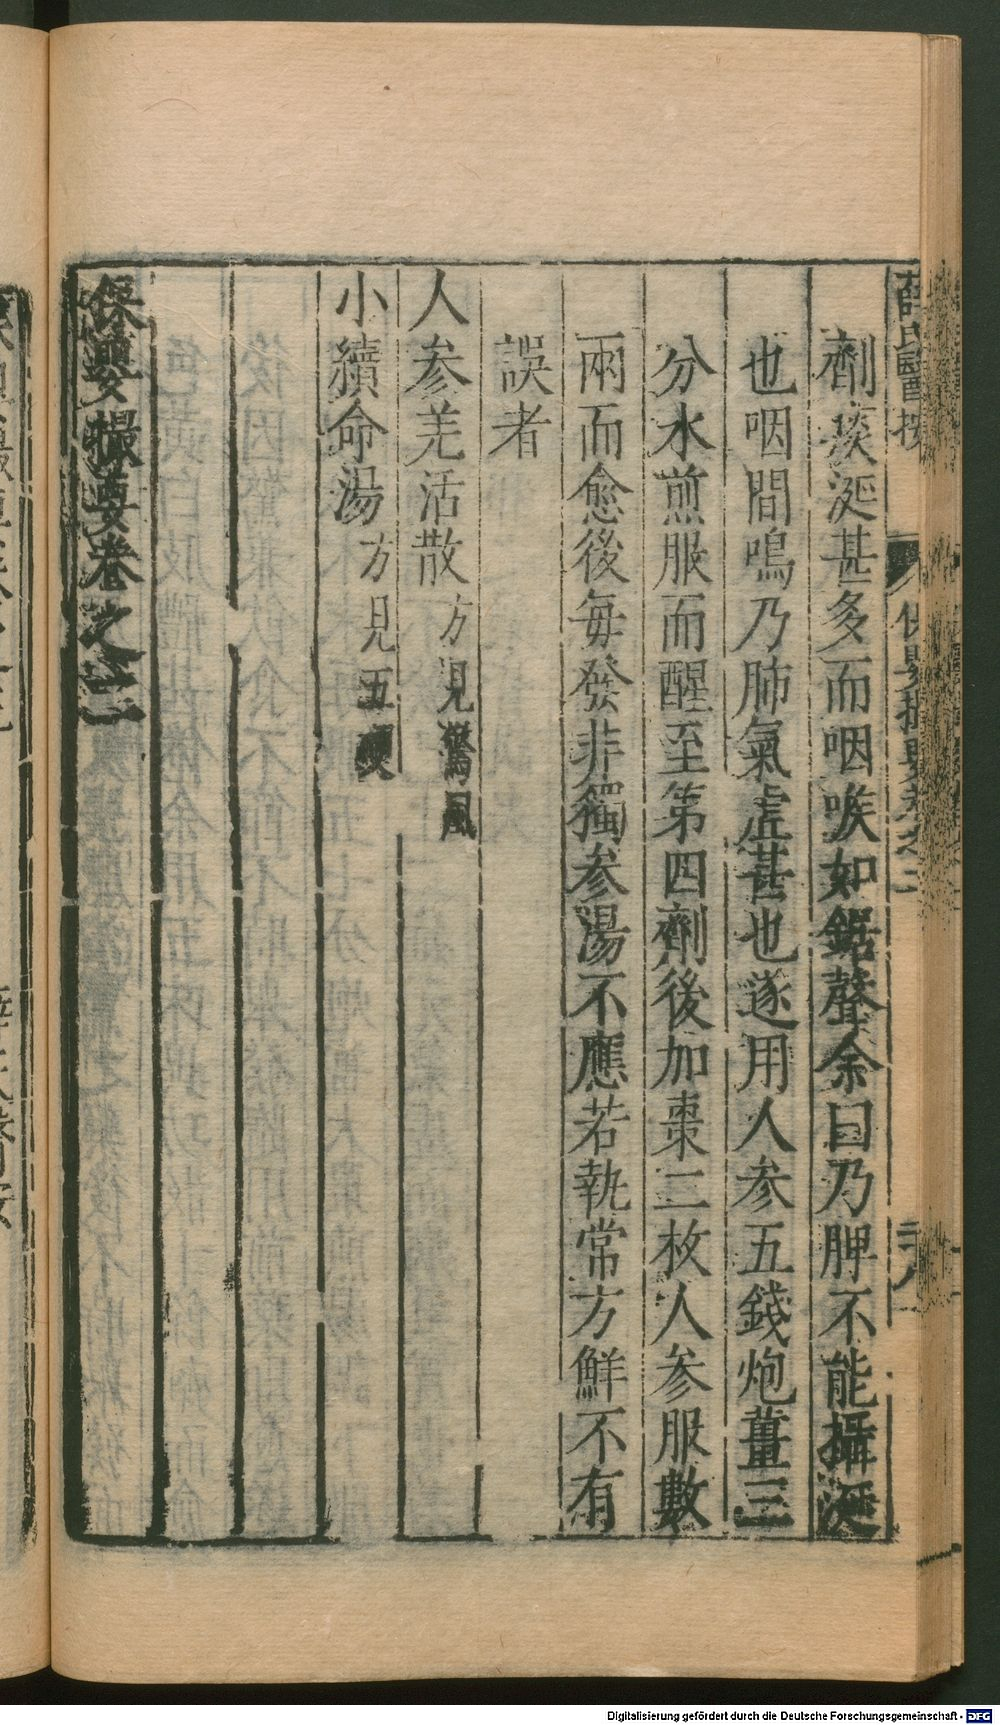 薛氏醫按 保嬰撮要卷之二 二十八
劑痰涎甚多而咽喉如鋸聲余曰乃脾不能攝涎
也咽間鳴乃肺氣虛甚也遂用人参五錢炮薑三
分水煎服而醒至第四劑後加棗二枚人参服數
兩而愈後每發非獨参湯不應若執常方鮮不有
誤者
人参羌活散 方見驚風
小續命湯 方見五硬
保嬰撮要卷之二
Digitalisierung gefördert durch die Deutsche Forschungsgemeinschaft - DFG